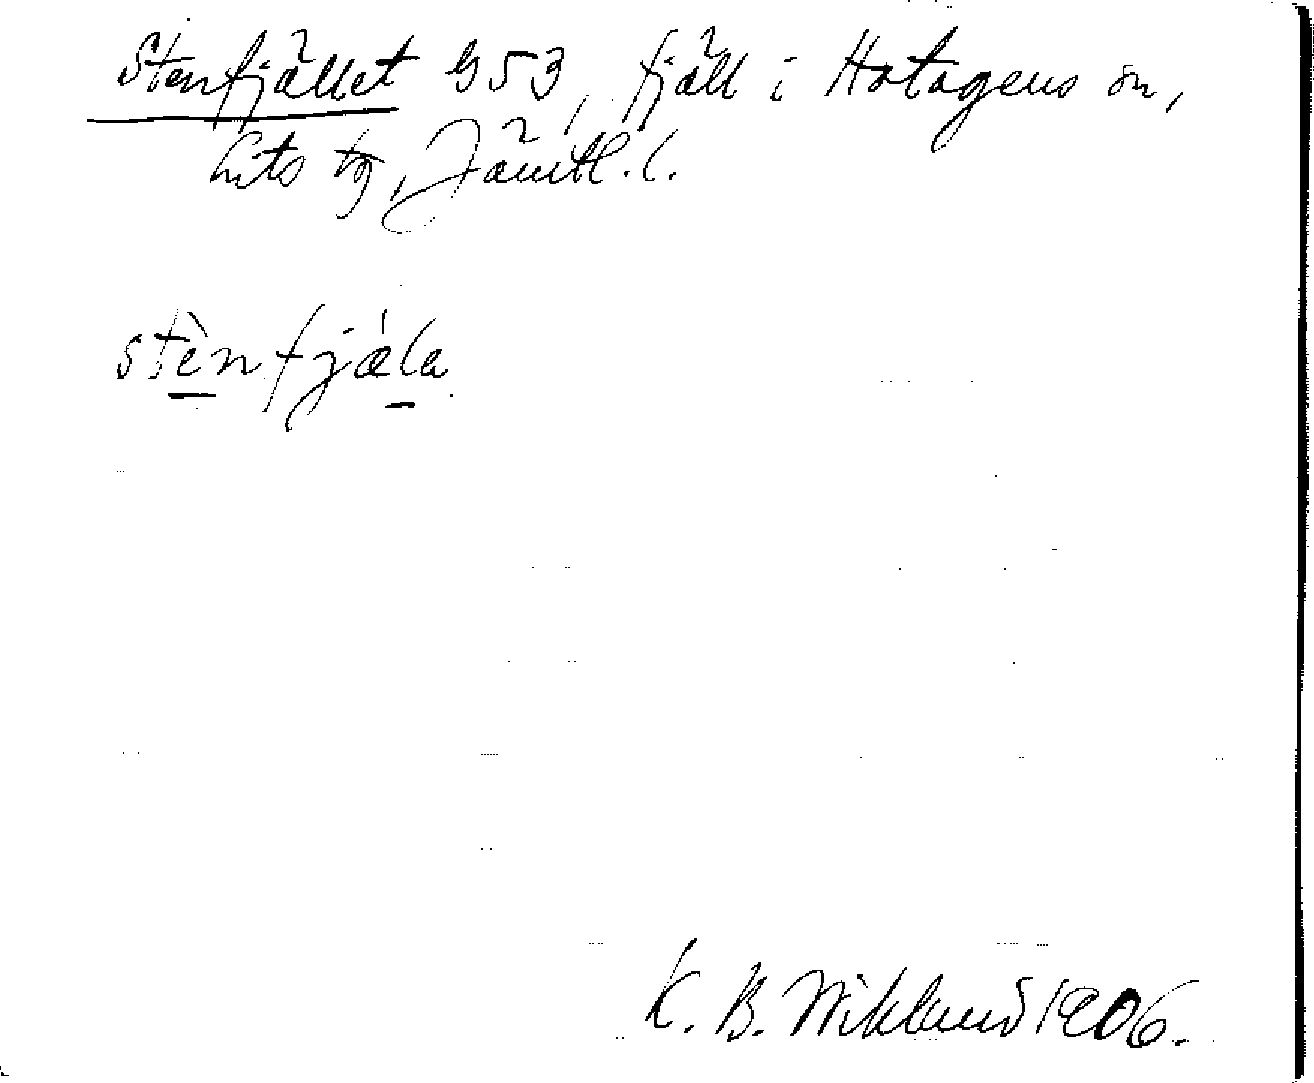 Stenfjället G53, fjäll i Hotagens sn,
Lits tg, Jämtl. l.
stènfjǽla
K. B. Wiklund 1906.